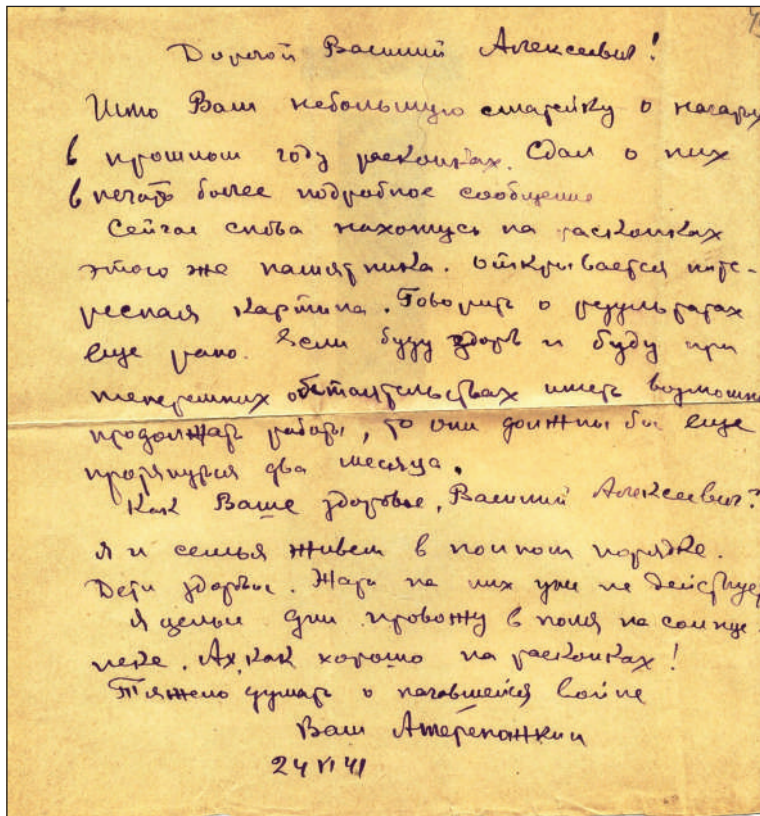 Дорогой Василий Алексеевич!
Шлю Вам небольшую статейку о начатых
в прошлом году раскопках. Сдал о них
в печать более подробное сообщение
Сейчас снова нахожусь на раскопках
этого же памятника. Открывается инте-
ресная картина. Говорить о результатах
еще рано. Если буду здоров и буду при
теперешних обстоятельствах иметь возможн
продолжать работы, то они должны бы еще
протянуться два месяца.
Как Ваше здоровье, Василий Алексеевич?
Я и семья живем в полном порядке.
Дети здоровы. Жара на них не действует
Я целые дни провожу в поля на солнце
пеке. Ах, как хорошо на раскопках!
Тяжело думать о начавшейся войне
Ваш АТереножкин
24 VI 41